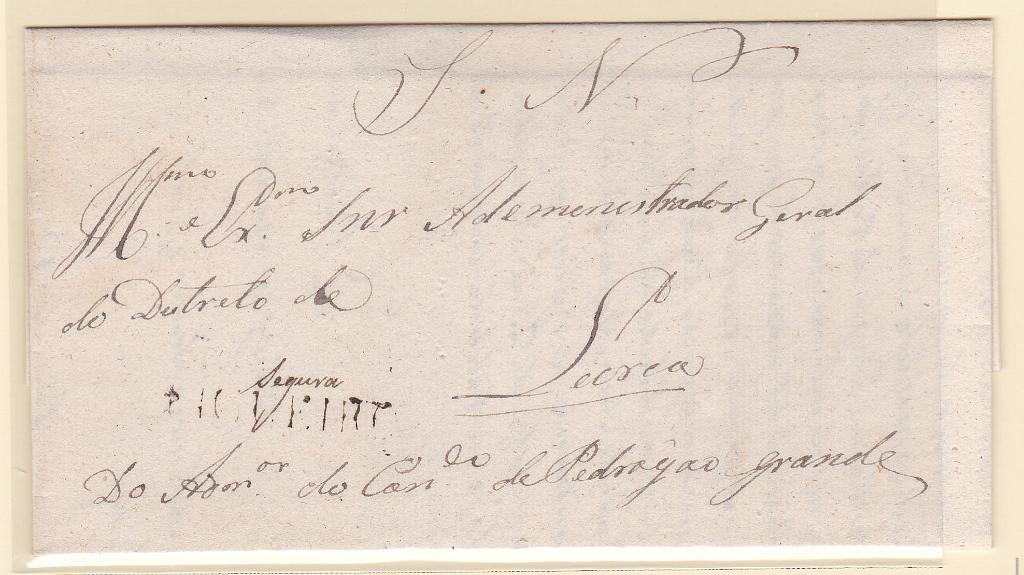 S. N.
Illmo e Exmo Snr Ademenistrador Geral
do Destreto de
Leirea
Segura
Do Admor do Condo de Pedrogão grande